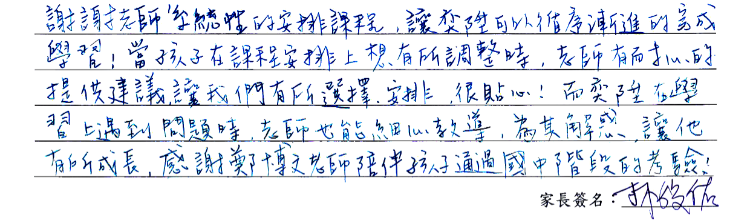 謝謝老師系統性的安排課程,讓奕陞可以循序漸進的完成
學習!當孩子在課程安排上想有所調整時,老師有耐心的
提供建議讓我們有所選擇、安排,很貼心!而奕陞在學
習上遇到問題時,老師也能細心教導,為其解惑,讓他
有所成長,感謝鄭博文老師陪伴孩子通過國中階段的考驗!
家長簽名:林俊佑